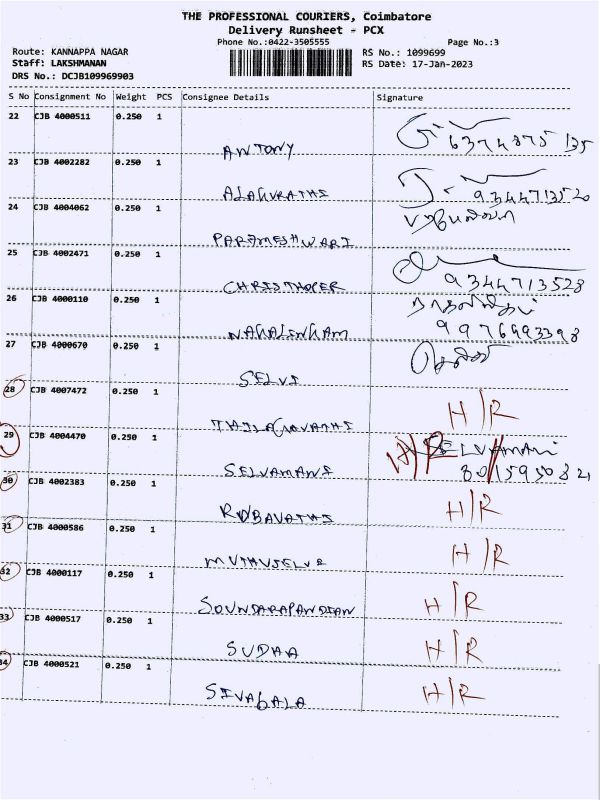 THE PROFESSIONAL COURIERS, Coimbatore
Delivery Runsheet - PCX
Phone No.:0422-3505555
Page No.:3
Route: KANNAPPA NAGAR
RS No.: 1099699
Staff: LAKSHMANAN
RS Date: 17-Jan-2023
DRS No.: DCJB109969903
S No Consignment No Weight PCS Consignee Details Signature
22 CJB 4000511 0.250 1
ANTONY 6374875135
23 CJB 4002282 0.250 1
ALAGURATHI 9344713520
24 CJB 4004062 0.250 1
PARAMESHWARI
25 CJB 4002471 0.250 1
CHRISTHOPER 9344713528
26 CJB 4000110 0.250 1
NAGALINGAM 9976993398
27 CJB 4000670 0.250 1
SELVI
28 CJB 4007472 0.250 1
THILAGAVATHI H/R
29 CJB 4004470 0.250 1
SELVAMANI H/R SELVAMANI
8015950821
30 CJB 4002383 0.250 1
RUBAVATHI H/R
31 CJB 4000586 0.250 1
MUTHUSELVI H/R
32 CJB 4000117 0.250 1
SOUNDARAPANDIAN H/R
33 CJB 4000517 0.250 1
SUDHA H/R
34 CJB 4000521 0.250 1
SIVABALA H/R